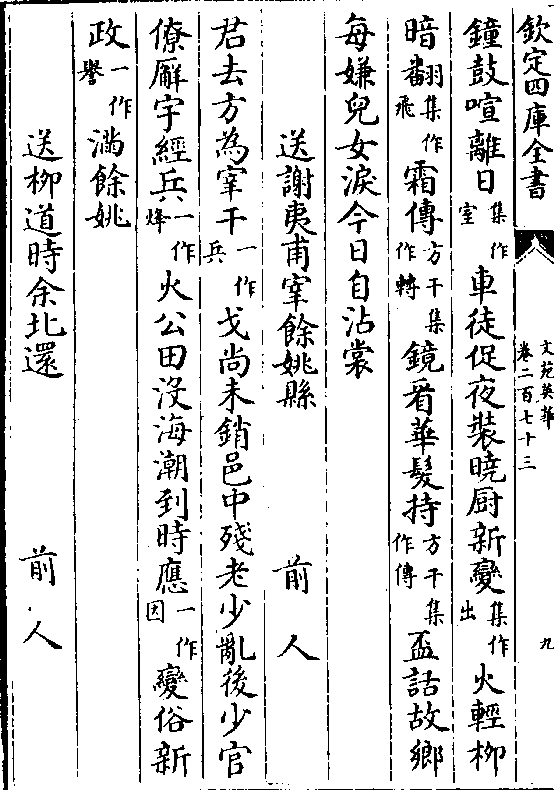 欽定四庫全書
文苑英華
卷二百七十三
九
鐘鼓喧離日集作室車徒促夜裝曉厨新變集作出火輕柳
暗翻集作飛霜傳方干集作轉鏡看華髮持方干集作傳盃話故鄉
每嫌兒女淚今日自沾裳
送謝夷甫宰餘姚縣 前人
君去方為宰干一作兵戈尚未銷邑中殘老少亂後少官
僚廨宇經兵一作烽火公田沒海潮到時應一作因變俗新
政一作譽滿餘姚
送柳道時余北還 前人